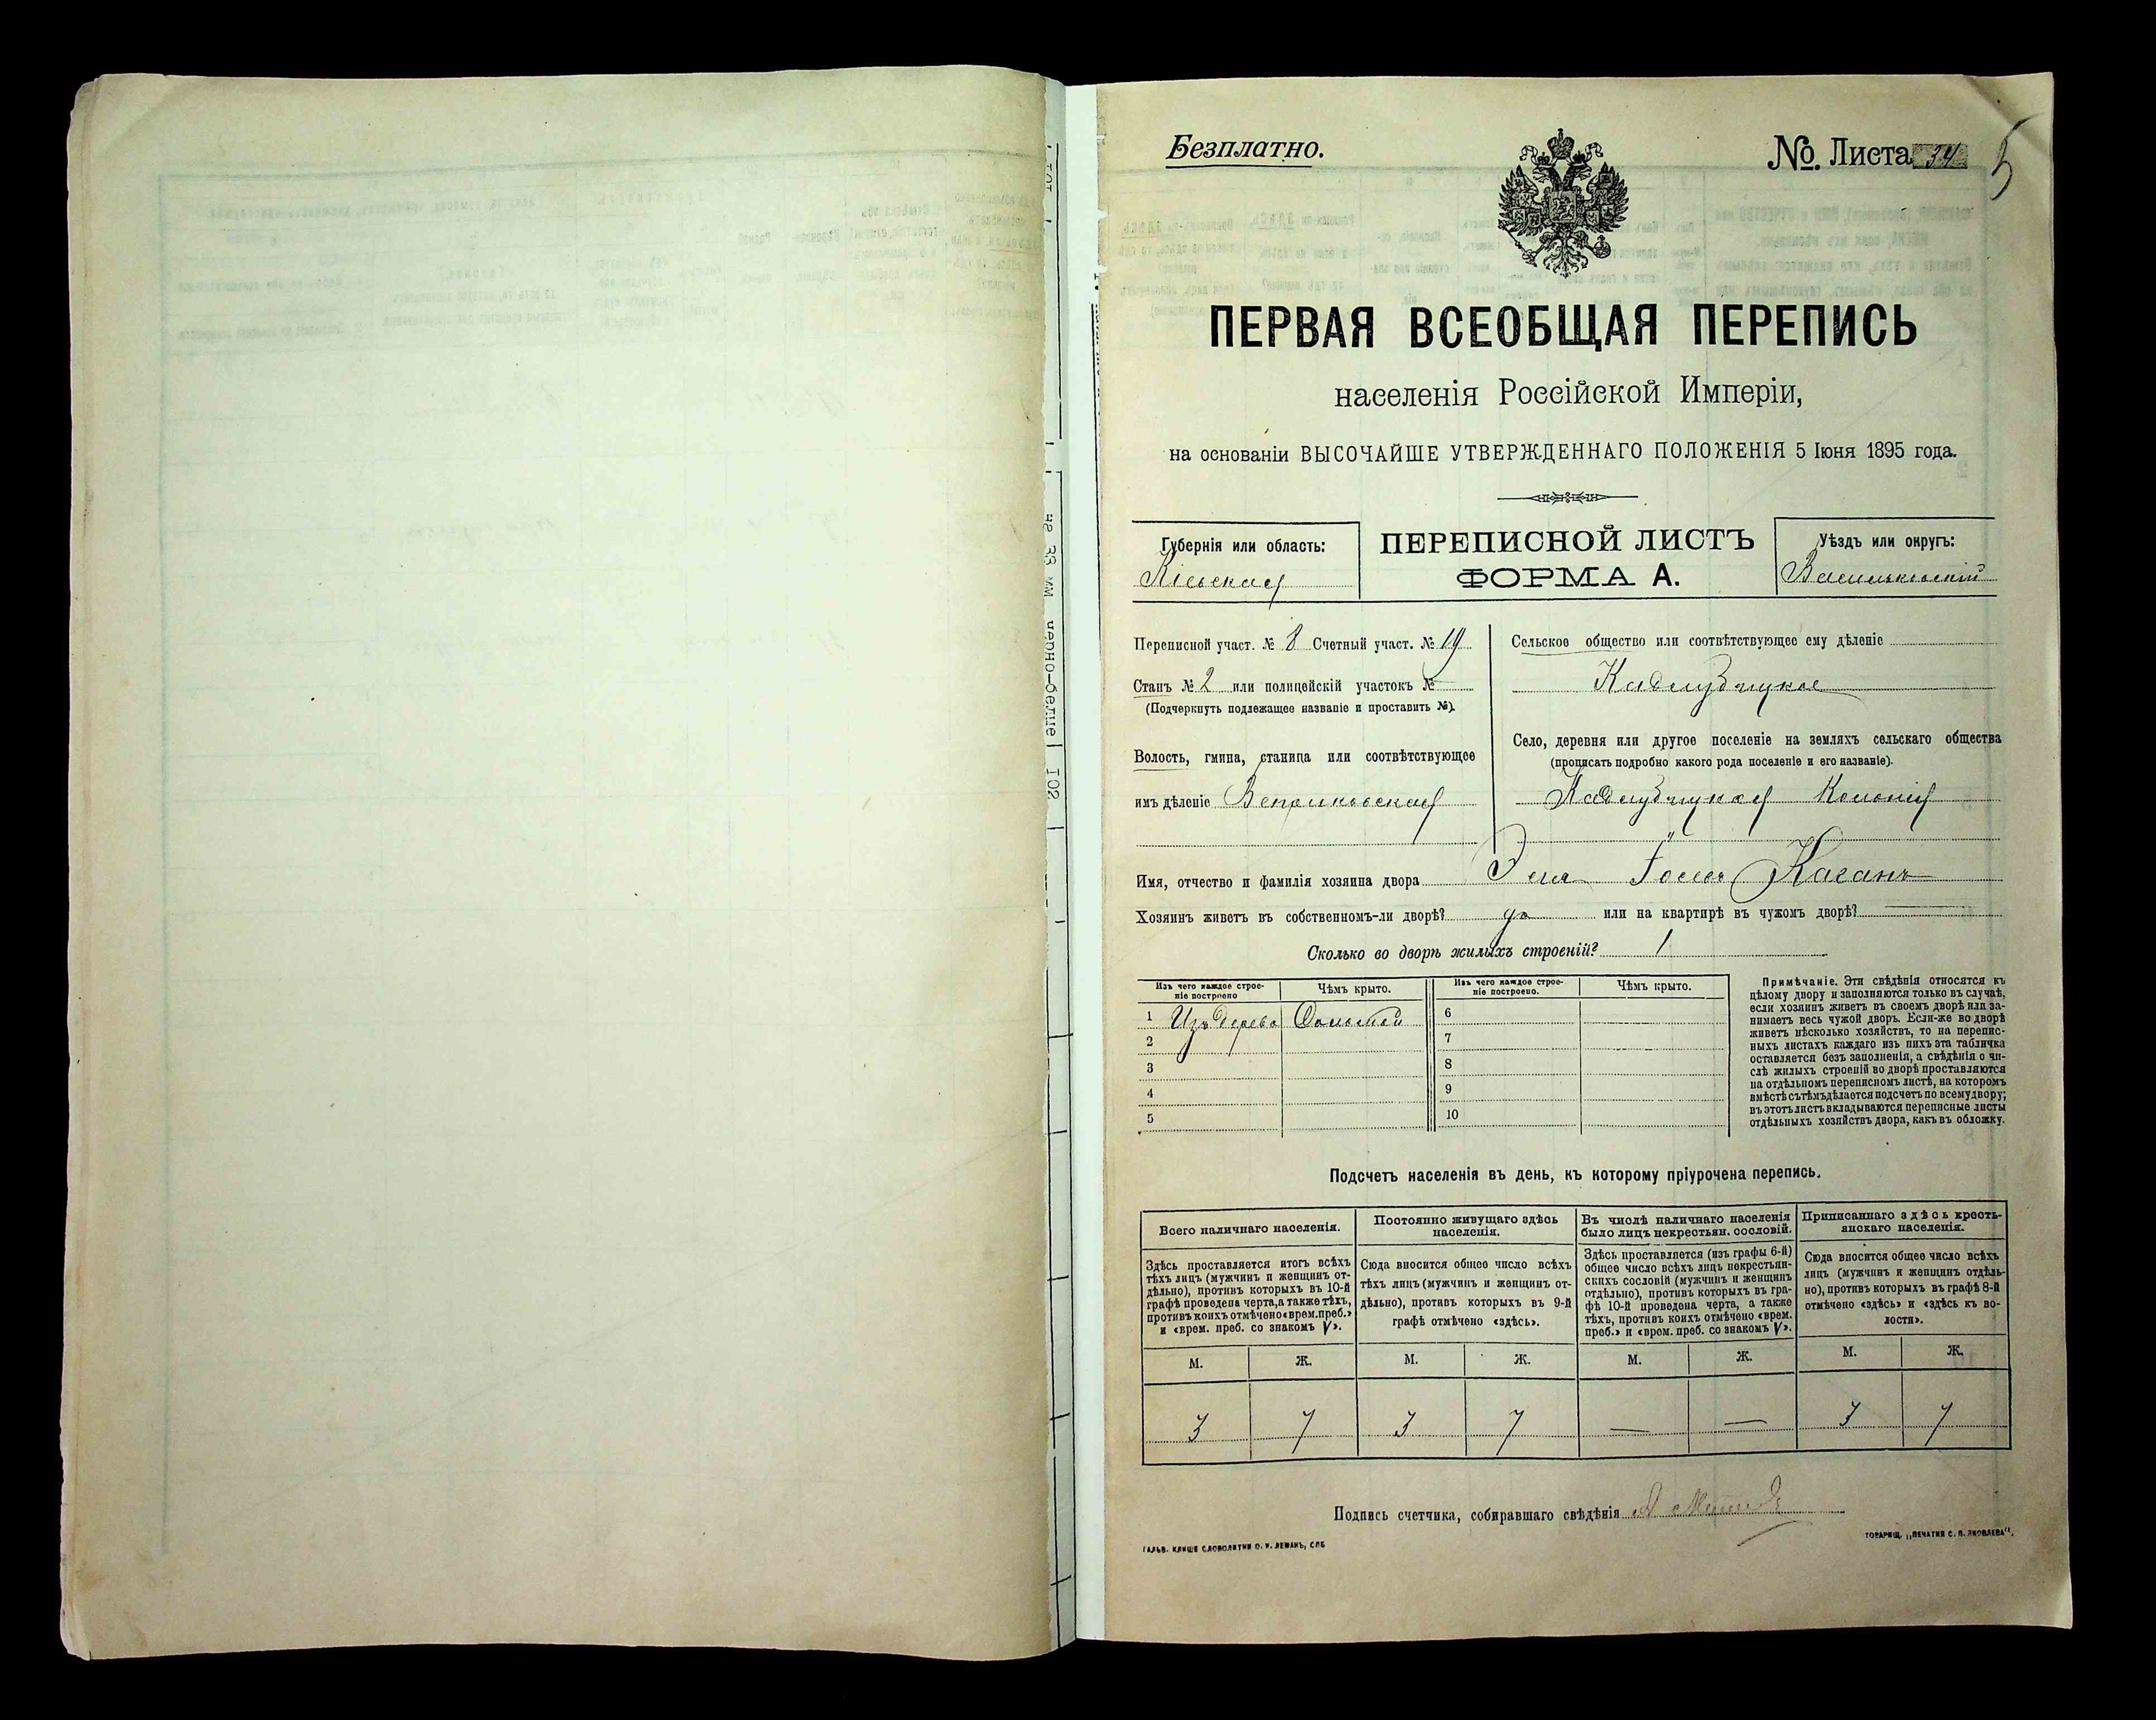 Безплатно.
№ Листа 34
5
ПЕРВАЯ ВСЕОБЩАЯ ПЕРЕПИСЬ
населенія Россійской Имперіи,
на основаніи ВЫСОЧАЙШЕ УТВЕРЖДЕННАГО ПОЛОЖЕНІЯ 5 Іюня 1895 года.
Губернія или область:
Кіевская
ПЕРЕПИСНОЙ ЛИСТЪ
ФОРМА А.
Уѣздъ или округъ:
Васильковскій
Переписной участ. № 8 Счетный участ. № 19
Станъ № 2 или полицейскій участокъ №
(Подчеркнуть подлежащее названіе и проставить №).
Волость, гмина, станица или соотвѣтствующее
имъ дѣленіе Веприковская
Сельское общество или соотвѣтствующее ему дѣленіе
Кадлубицкое
Село, деревня или другое поселеніе на земляхъ сельскаго общества
(прописать подробно какого рода поселеніе и его названіе).
Кадлубицкая Колонія
Имя, отчество и фамилія хозяина двора Каганъ
Хозяинъ живетъ въ собственномъ-ли дворѣ? да или на квартирѣ въ чужомъ дворѣ?
Сколько во дворѣ жилыхъ строеній? 1
Изъ чего каждое строе-
ніе построено
Чѣмъ крыто.
Изъ чего каждое строе-
ніе построено.
Чѣмъ крыто.
1 Изъ дерева Соломой
2
3
4
5
6
7
8
9
10
Примѣчаніе. Эти свѣдѣнія относятся къ
цѣлому двору и заполняются только въ случаѣ,
если хозяинъ живетъ въ своемъ дворѣ или за-
нимаетъ весь чужой дворъ. Если-же во дворѣ
живетъ нѣсколько хозяйствъ, то на перепис-
ныхъ листахъ каждаго изъ нихъ эта табличка
оставляется безъ заполненія, а свѣдѣнія о чи-
слѣ жилыхъ строеній во дворѣ проставляются
на отдѣльномъ переписномъ листѣ, на которомъ
вмѣстѣ съ тѣмъ дѣлается подсчетъ по всему двору;
въ этотъ листъ вкладываются переписные листы
отдѣльныхъ хозяйствъ двора, какъ въ обложку.
Подсчетъ населенія въ день, къ которому пріурочена перепись.
Всего наличнаго населенія.
Здѣсь проставляется итогъ всѣхъ
тѣхъ лицъ (мужчинъ и женщинъ от-
дѣльно), противъ которыхъ въ 10-й
графѣ проведена черта, а также тѣхъ,
противъ коихъ отмѣчено «врем. преб.»
и «врем. преб. со знакомъ V».
Постоянно живущаго здѣсь
населенія.
Сюда вносится общее число всѣхъ
тѣхъ лицъ (мужчинъ и женщинъ от-
дѣльно), противъ которыхъ въ 9-й
графѣ отмѣчено «здѣсь».
Въ числѣ наличнаго населенія
было лицъ некрестьян. сословій.
Здѣсь проставляется (изъ графы 6-й)
общее число всѣхъ лицъ некрестьян-
скихъ сословій (мужчинъ и женщинъ
отдѣльно), противъ которыхъ въ гра-
фѣ 10-й проведена черта, а также
тѣхъ, противъ коихъ отмѣчено «врем.
преб.» и «врем. преб. со знакомъ V».
Приписаннаго здѣсь кресть-
янскаго населенія.
Сюда вносится общее число всѣхъ
лицъ (мужчинъ и женщинъ отдѣль-
но), противъ которыхъ въ графѣ 8-й
отмѣчено «здѣсь» и «здѣсь къ во-
лости».
М. Ж. М. Ж. М. Ж. М. Ж.
3 7 3 7 — — 3 7
Подпись счетчика, собиравшаго свѣдѣнія
ГАЛЬВ. КЛИШЕ СЛОВОЛИТНИ О. И. ЛЕМАНЪ, СПБ
ТОВАРИЩ. „ПЕЧАТНЯ С. П. ЯКОВЛЕВА“.